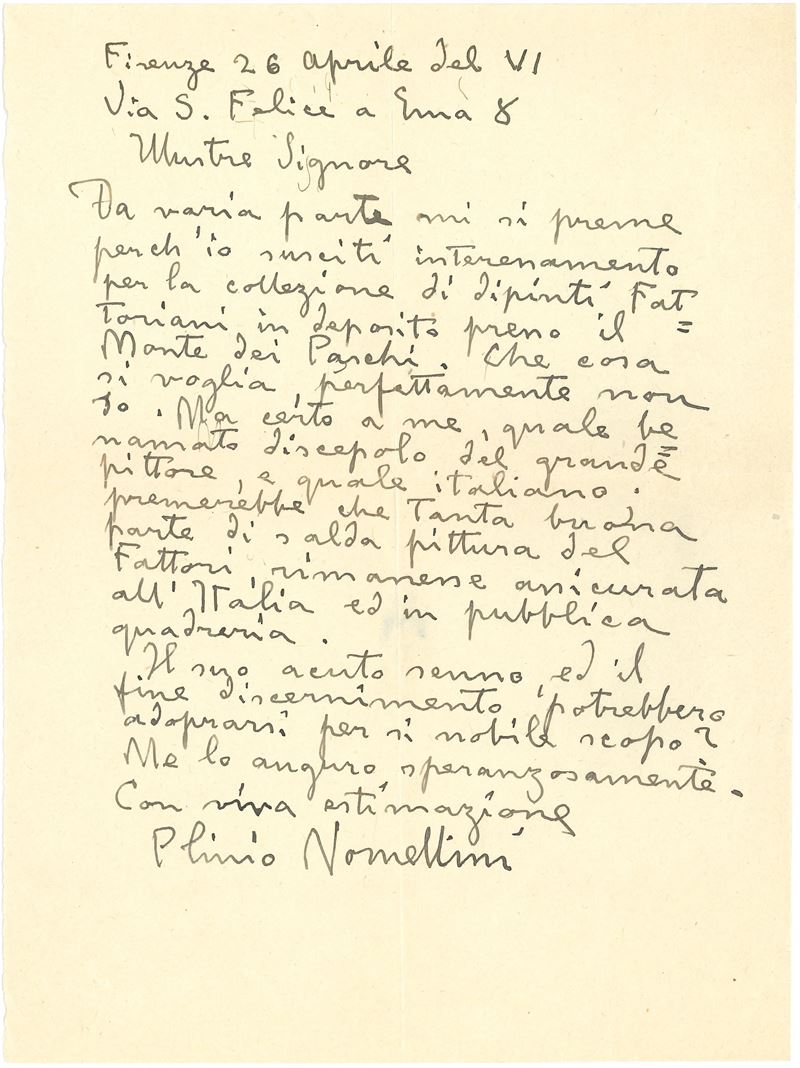 Firenze 26 aprile del VI
Via S. Felice a Ema 8
Illustre Signore
Da varia parte mi si preme
perch'io susciti interessamento
per la collezione di dipinti Fat=
toriani in deposito presso il
Monte dei Paschi. Che cosa
si voglia, perfettamente non
so. Ma certo a me, quale be=
namato discepolo del grande
pittore, e quale italiano.
premerebbe che tanta buona
parte di salda pittura del
Fattori, rimanesse assicurata
all'Italia ed in pubblica
quadreria.
Il suo acuto senno, ed il
fine discernimento, potrebbero
adoprarsi per si nobile scopo?
Me lo auguro speranzosamente.
Con viva estimazione
Plinio Nomellini